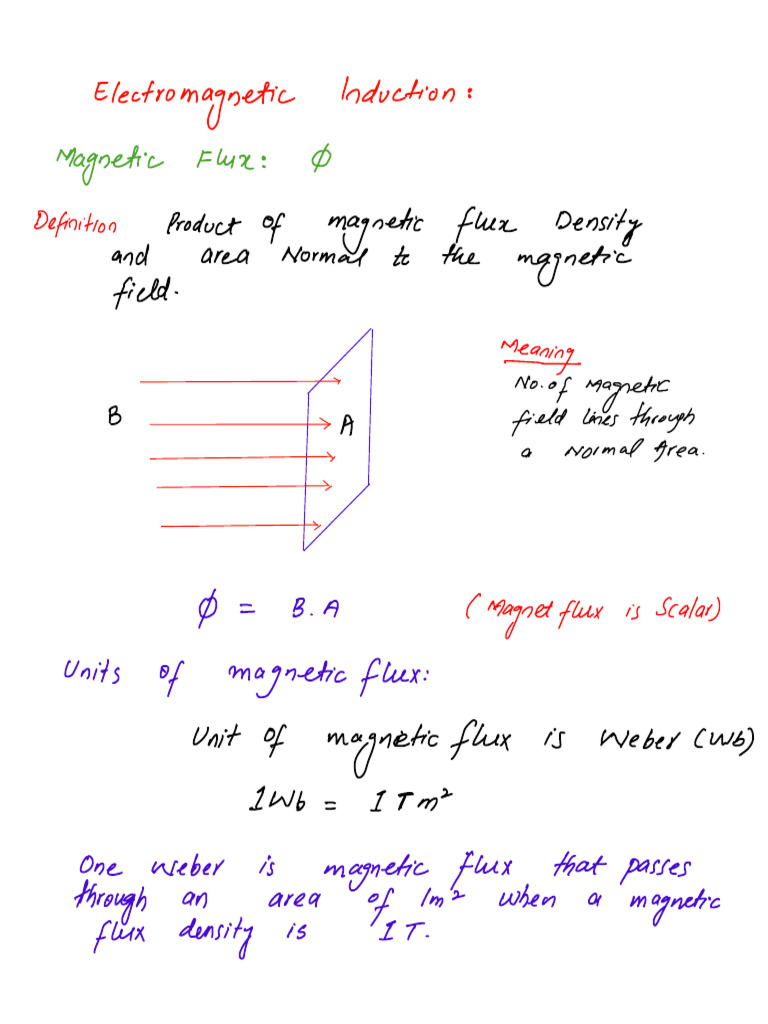 Electromagnetic Induction:
Magnetic Flux: ϕ
Definition Product of magnetic flux Density
and area Normal to the magnetic
field.
Meaning
No. of Magnetic
field lines through
a Normal Area.
B
A
ϕ = B.A (Magnet flux is Scalar)
Units of magnetic flux:
Unit of magnetic flux is Weber (Wb)
1Wb = 1 Tm²
One weber is magnetic flux that passes
through an area of 1m² when a magnetic
flux density is 1T.